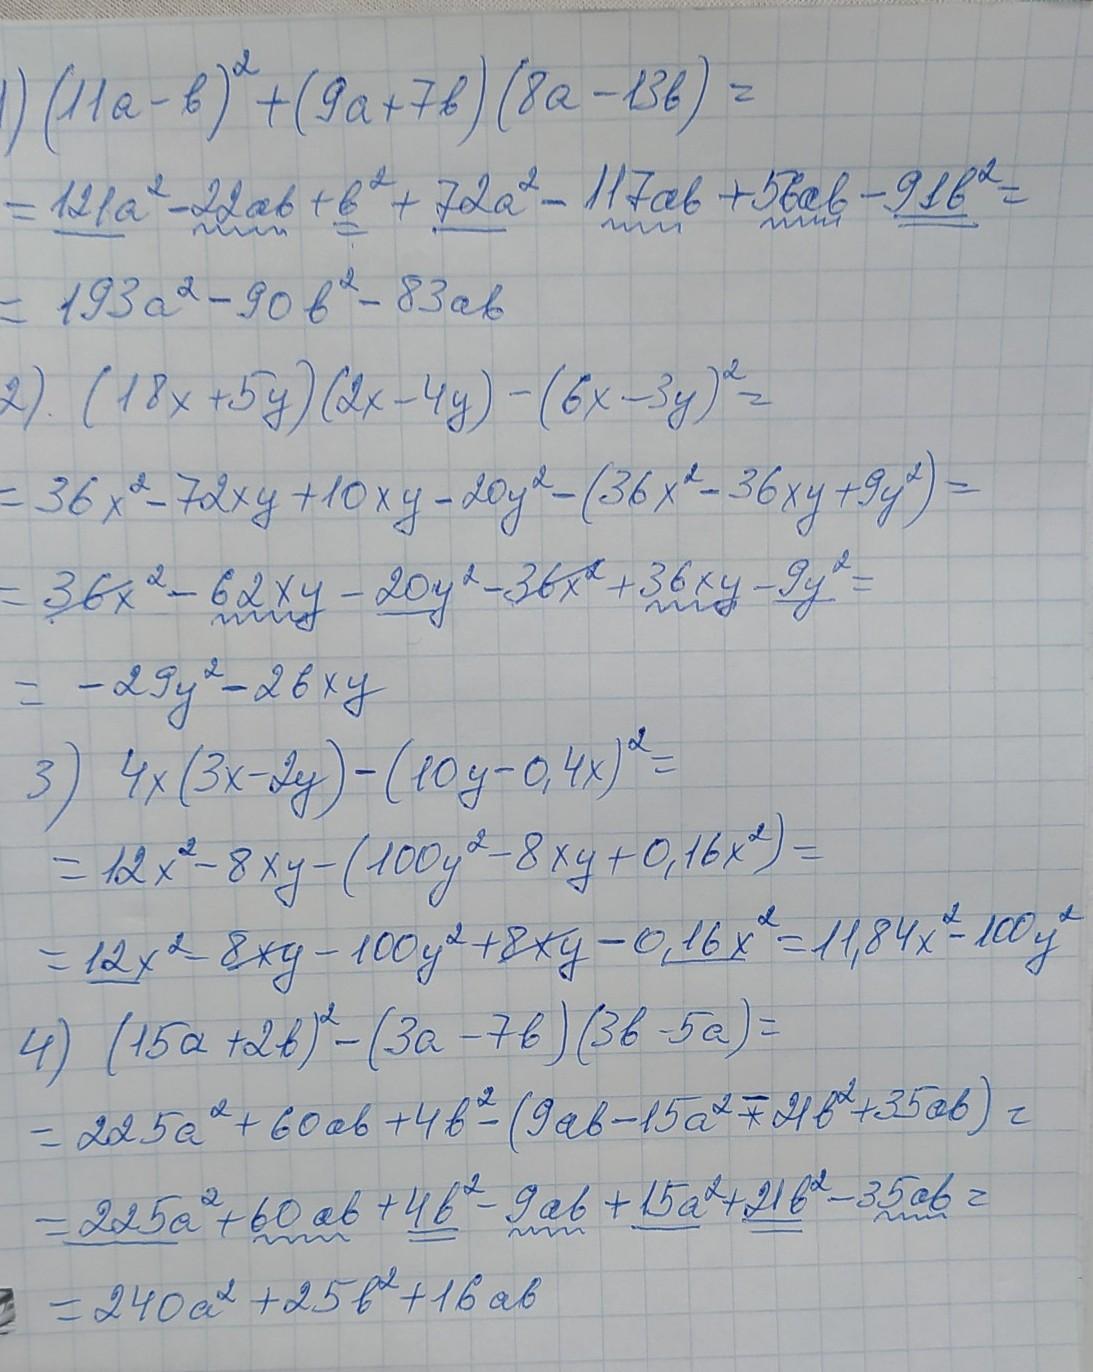 1) (11a-b)²+(9a+7b)(8a-13b)=
=121a²-22ab+b²+72a²-117ab+56ab-91b²=
=193a²-90b²-83ab
2). (18x+5y)(2x-4y)-(6x-3y)²=
=36x²-72xy+10xy-20y²-(36x²-36xy+9y²)=
=36x²-62xy-20y²-36x²+36xy-9y²=
=-29y²-26xy
3) 4x(3x-2y)-(10y-0,4x)²=
=12x²-8xy-(100y²-8xy+0,16x²)=
=12x²-8xy-100y²+8xy-0,16x²=11,84x²-100y²
4) (15a+2b)²-(3a-7b)(3b-5a)=
=225a²+60ab+4b²-(9ab-15a²-21b²+35ab)=
=225a²+60ab+4b²-9ab+15a²+21b²-35ab=
=240a²+25b²+16ab